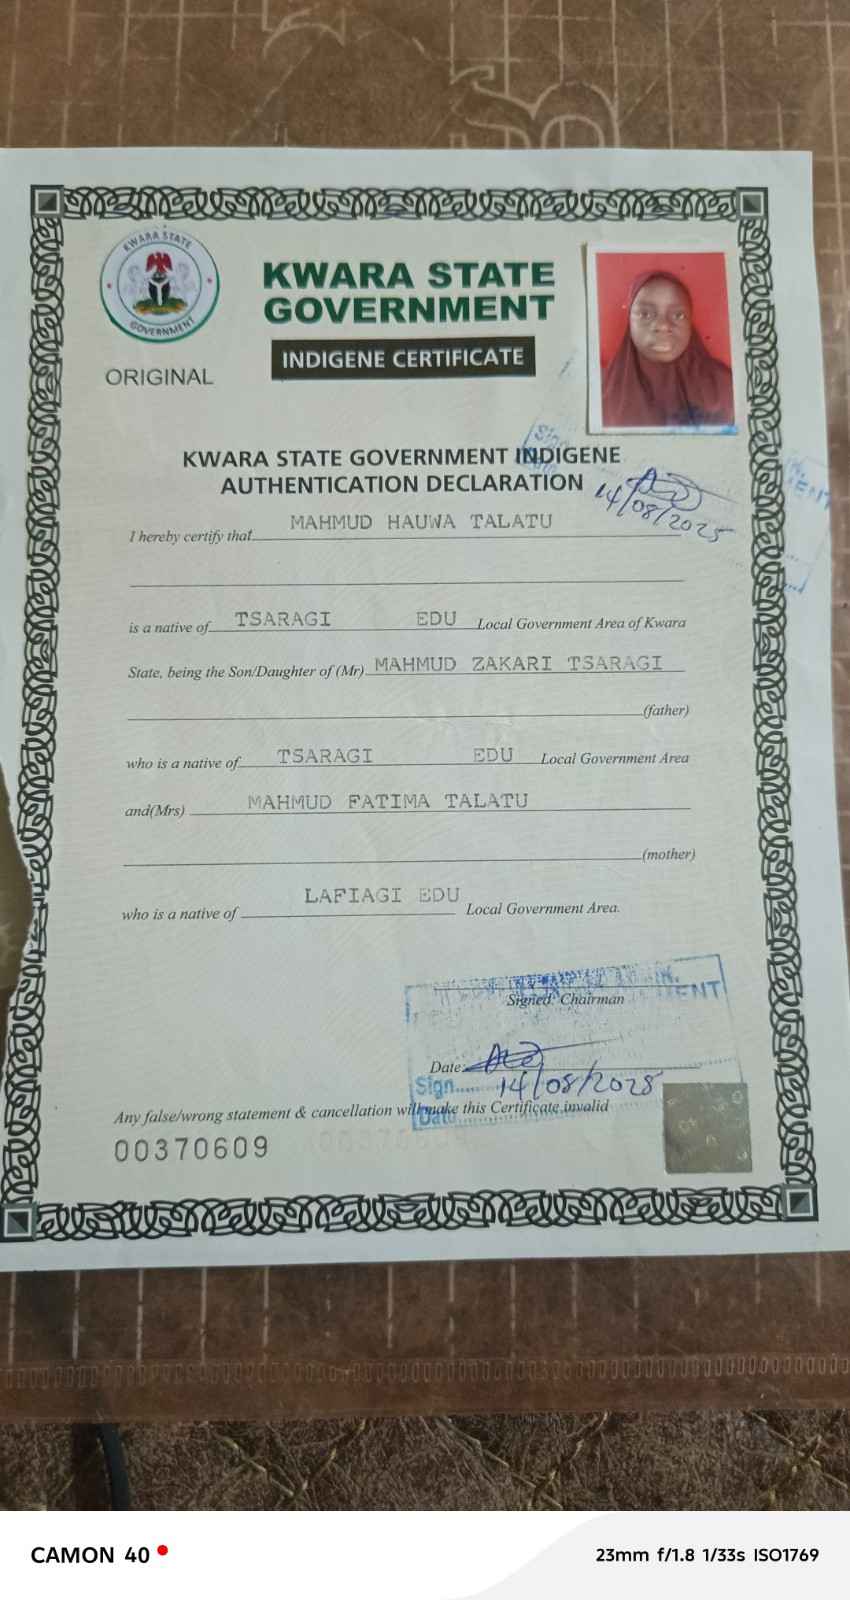 KWARA STATE
GOVERNMENT
KWARA STATE
GOVERNMENT
INDIGENE CERTIFICATE
ORIGINAL
KWARA STATE GOVERNMENT INDIGENE
AUTHENTICATION DECLARATION
14/08/2025
I hereby certify that MAHMUD HAUWA TALATU
is a native of TSARAGI EDU Local Government Area of Kwara
State, being the Son/Daughter of (Mr) MAHMUD ZAKARI TSARAGI
(father)
who is a native of TSARAGI EDU Local Government Area
and(Mrs) MAHMUD FATIMA TALATU
(mother)
who is a native of LAFIAGI EDU Local Government Area.
Signed: Chairman
Date:
Sign
14/08/2025
Date
Any false/wrong statement & cancellation will make this Certificate invalid
00370609
CAMON 40
23mm f/1.8 1/33s ISO1769